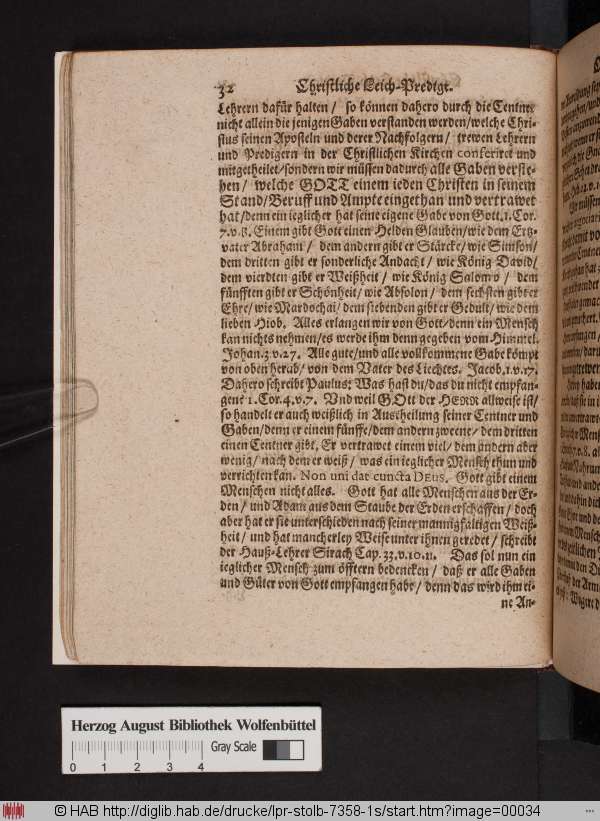 32 Christliche Leich-Predigt.
Lehrern dafür halten / so können dahero durch die Centner
nicht allein die jenigen Gaben verstanden werden/welche Chri-
stus seinen Aposteln und derer Nachfolgern / trewen Lehrern
und Predigern in der Christlichen Kirchen conferiret und
mitgetheilet/sondern wir müssen dadurch alle Gaben verste-
hen / welche GOTT einem ieden Christen in seinem
Stand/Beruff und Ampte eingethan und vertrawet
hat/denn ein ieglicher hat seine eigene Gabe von Gott.1.Cor.
7.v.8. Einem gibt Gott einen Helden Glauben/wie dem Ertz-
vater Abraham / dem andern gibt er Stärcke/wie Simson/
dem dritten gibt er sonderliche Andacht / wie König David/
dem vierdten gibt er Weißheit / wie König Salomo / dem
fünfften gibt er Schönheit/wie Absolon / dem sechsten gibt er
Ehre/wie Mardochai/dem siebenden gibt er Gedult/wie dem
lieben Hiob. Alles erlangen wir von Gott/denn ein Mensch
kan nichts nehmen/es werde ihm denn gegeben vom Himmel.
Johan.3.v.27. Alle gute/und alle vollkommene Gabe kömpt
von oben herab/ von dem Vater des Liechtes. Jacob.1.v.17.
Dahero schreibt Paulus: Was hast du/das du nicht empfan-
gen? 1.Cor.4.v.7. Und weil GOtt der HERR allweise ist/
so handelt er auch weißlich in Austheilung seiner Centner und
Gaben/denn er einem fünffe/dem andern zweene/dem dritten
einen Centner gibt. Er vertrawet einem viel/dem andern aber
wenig/nach dem er weiß / was ein ieglicher Mensch thun und
verrichten kan. Non uni dat cuncta DEUS. Gott gibt einem
Menschen nicht alles. Gott hat alle Menschen aus der Er-
den / und Adam aus dem Staube der Erden erschaffen / doch
aber hat er sie unterschieden nach seiner mannigfaltigen Weiß-
heit / und hat mancherley Weise unter ihnen geredet / schreibt
der Hauß-Lehrer Sirach Cap.33.v.10.11. Das sol nun ein
ieglicher Mensch zum öfftern bedencken / daß er alle Gaben
und Güter von Gott empfangen habe / denn das wird ihm ei-
ne An-
Herzog August Bibliothek Wolfenbüttel
0 1 2 3 4 Gray Scale
© HAB http://diglib.hab.de/drucke/lpr-stolb-7358-1s/start.htm?image=00034